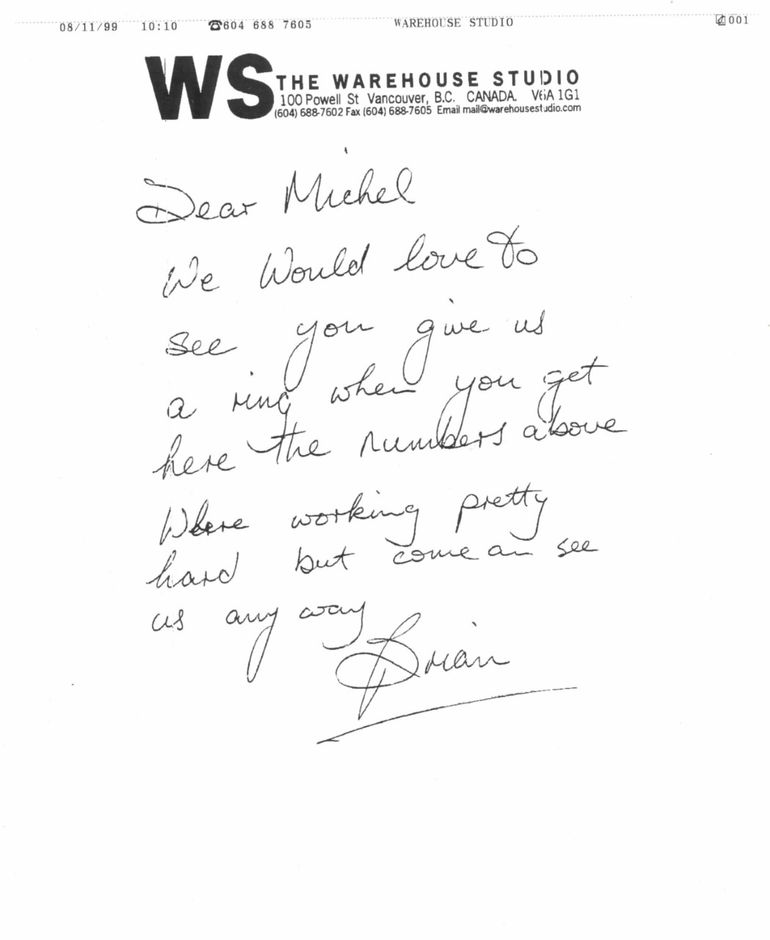 08/11/99 10:10 ☎604 688 7605 WAREHOUSE STUDIO 001
WS THE WAREHOUSE STUDIO
100 Powell St Vancouver, B.C. CANADA. V6A 1G1
(604) 688-7602 Fax (604) 688-7605 Email mail@warehousestudio.com
Dear Michel
We Would love to
see you give us
a ring when you get
here the numbers above
Where working pretty
hard but come an see
us any way
Brian